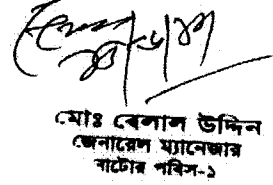 মোঃ বেলাল উদ্দিন
জেনারেল ম্যানেজার
নাটোর পবিস-১